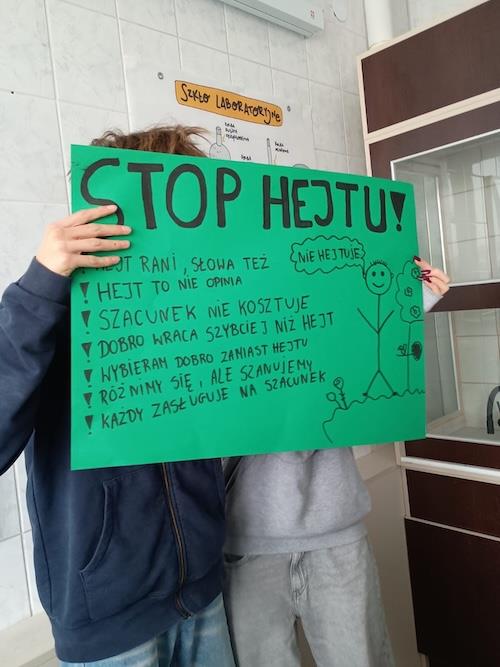 SZKŁO LABORATORYJNE
STOP HEJTU!
HEJT RANI, SŁOWA TEŻ
! HEJT TO NIE OPINIA
! SZACUNEK NIE KOSZTUJE
! DOBRO WRACA SZYBCIEJ NIŻ HEJT
! WYBIERAM DOBRO ZAMIAST HEJTU
! RÓŻNIMY SIĘ, ALE SZANUJEMY
! KAŻDY ZASŁUGUJE NA SZACUNEK
NIE HEJTUJĘ